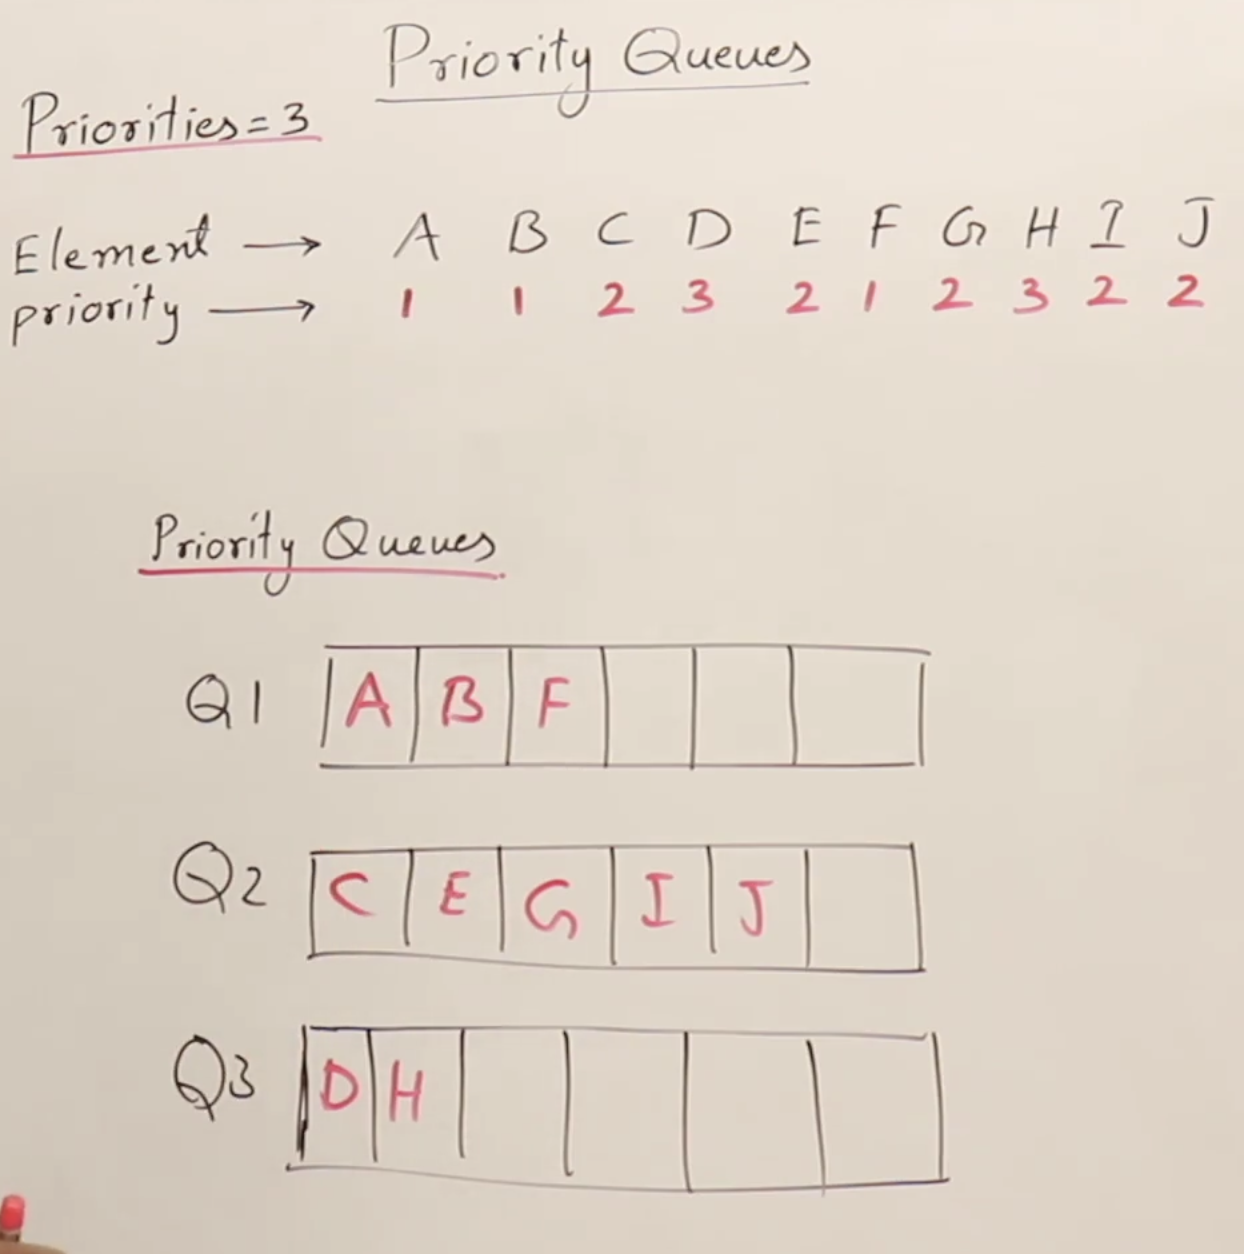 Priority Queues
Priorities=3
Element → A B C D E F G H I J
priority → 1 1 2 3 2 1 2 3 2 2
Priority Queues
Q1 A B F
Q2 C E G I J
Q3 D H